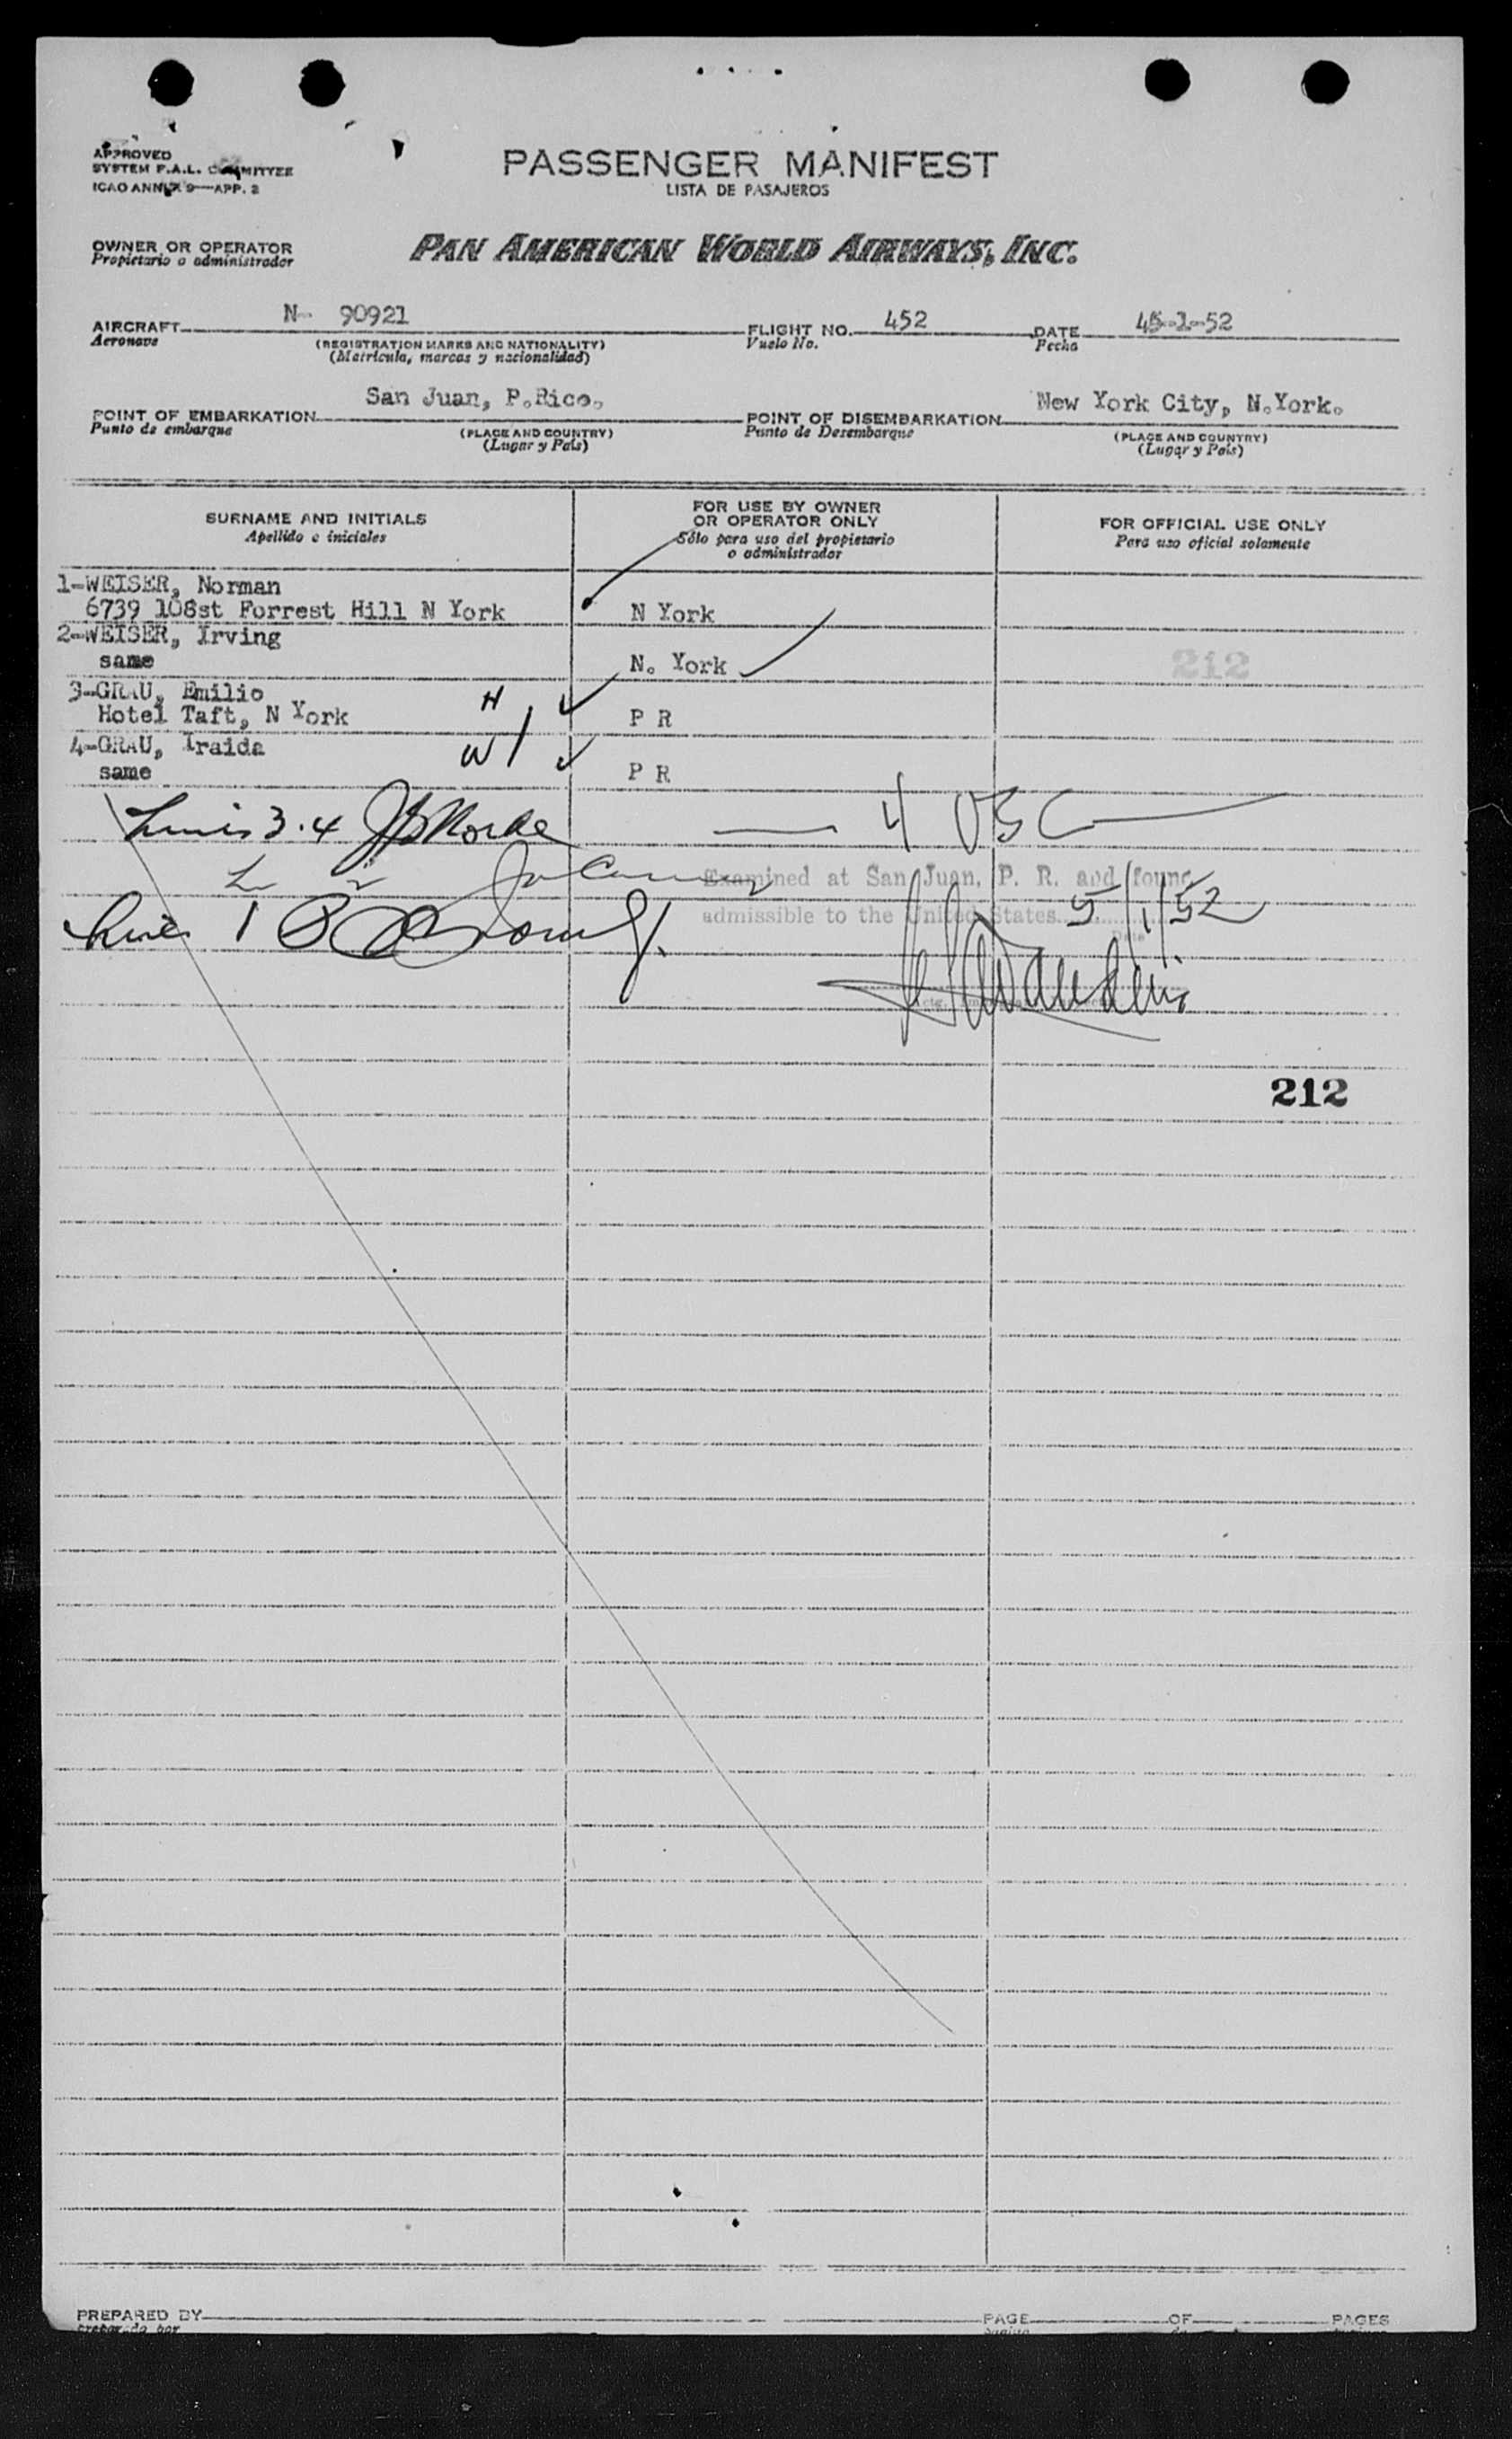 APPROVED
SYSTEM F.A.L. COMMITTEE
ICAO ANNEX 9—APP. 2
PASSENGER MANIFEST
LISTA DE PASAJEROS
OWNER OR OPERATOR
Propietario o administrador
PAN AMERICAN WORLD AIRWAYS, INC.
AIRCRAFT N- 90921 FLIGHT NO. 452 DATE 45-1-52
Aeronave (REGISTRATION MARKS AND NATIONALITY) Vuelo No. Fecha
(Matrícula, marcas y nacionalidad)
POINT OF EMBARKATION San Juan, P.Rico. POINT OF DISEMBARKATION New York City, N.York.
Punto de embarque (PLACE AND COUNTRY) Punto de Desembarque (PLACE AND COUNTRY)
(Lugar y País) (Lugar y País)
SURNAME AND INITIALS
Apellido e iniciales
FOR USE BY OWNER
OR OPERATOR ONLY
Sólo para uso del propietario
o administrador
FOR OFFICIAL USE ONLY
Para uso oficial solamente
1-WEISER, Norman
6739 108st Forrest Hill N York N York
2-WEISER, Irving
same N. York 212
3-GRAU, Emilio H
Hotel Taft, N York P R
4-GRAU, Iraida W
same P R
3.4 4 USC
Examined at San Juan, P. R. and found
admissible to the United States 5/1/52
Date
1
212
PREPARED BY PAGE OF PAGES